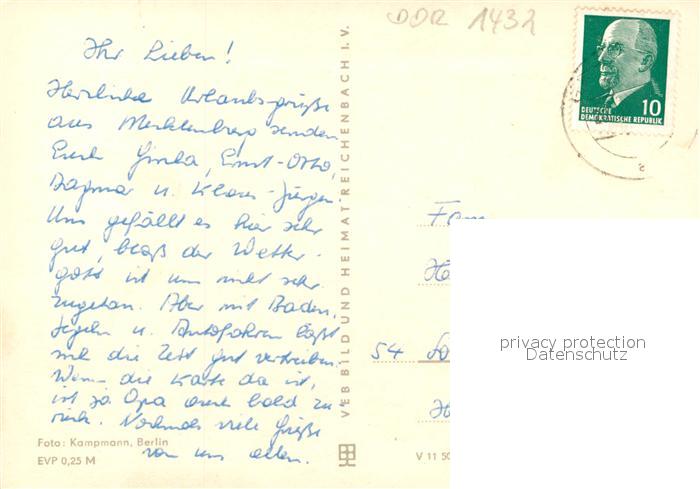 DDR 1432
Ihr Lieben!
Herzliche Urlaubsgrüße
aus Mecklenburg senden
Euch Ernst-Otto,
Dagmar u. Klaus-Jürgen.
Uns gefällt es hier sehr
gut, bloß der Wetter-
gott ist uns nicht sehr
zugetan. Aber mit Baden,
Segeln u. Autofahren läßt
sich die Zeit gut vertreiben.
Wenn die Karte da ist,
ist ja Opa auch bald zu-
rück. Nochmals viele Grüße
von uns allen.
Foto: Kampmann, Berlin
EVP 0,25 M
VEB BILD UND HEIMAT REICHENBACH I. V.
10
DEUTSCHE
DEMOKRATISCHE REPUBLIK
Fam
54
V 11 50
privacy protection
Datenschutz